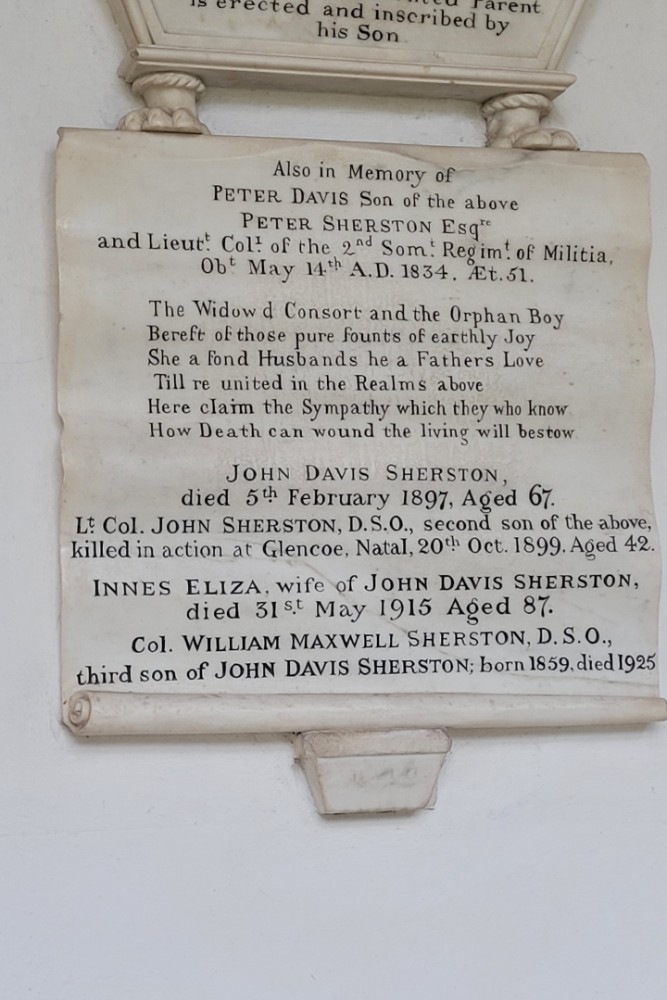 Parent
is erected and inscribed by
his Son
Also in Memory of
PETER DAVIS Son of the above
PETER SHERSTON Esqʳᵉ
and Lieutᵗ. Colˡ. of the 2ⁿᵈ Somᵗ. Regimᵗ. of Militia,
Obᵗ May 14ᵗʰ A.D. 1834. Æt. 51.
The Widow d Consort and the Orphan Boy
Bereft of those pure founts of earthly Joy
She a fond Husbands he a Fathers Love
Till re united in the Realms above
Here claim the Sympathy which they who know
How Death can wound the living will bestow
JOHN DAVIS SHERSTON,
died 5ᵗʰ February 1897, Aged 67.
Lᵗ. Col. JOHN SHERSTON, D.S.O., second son of the above,
killed in action at Glencoe, Natal, 20ᵗʰ Oct. 1899. Aged 42.
INNES ELIZA, wife of JOHN DAVIS SHERSTON,
died 31ˢ.ᵗ May 1915 Aged 87.
Col. WILLIAM MAXWELL SHERSTON, D.S.O.,
third son of JOHN DAVIS SHERSTON; born 1859. died 1925